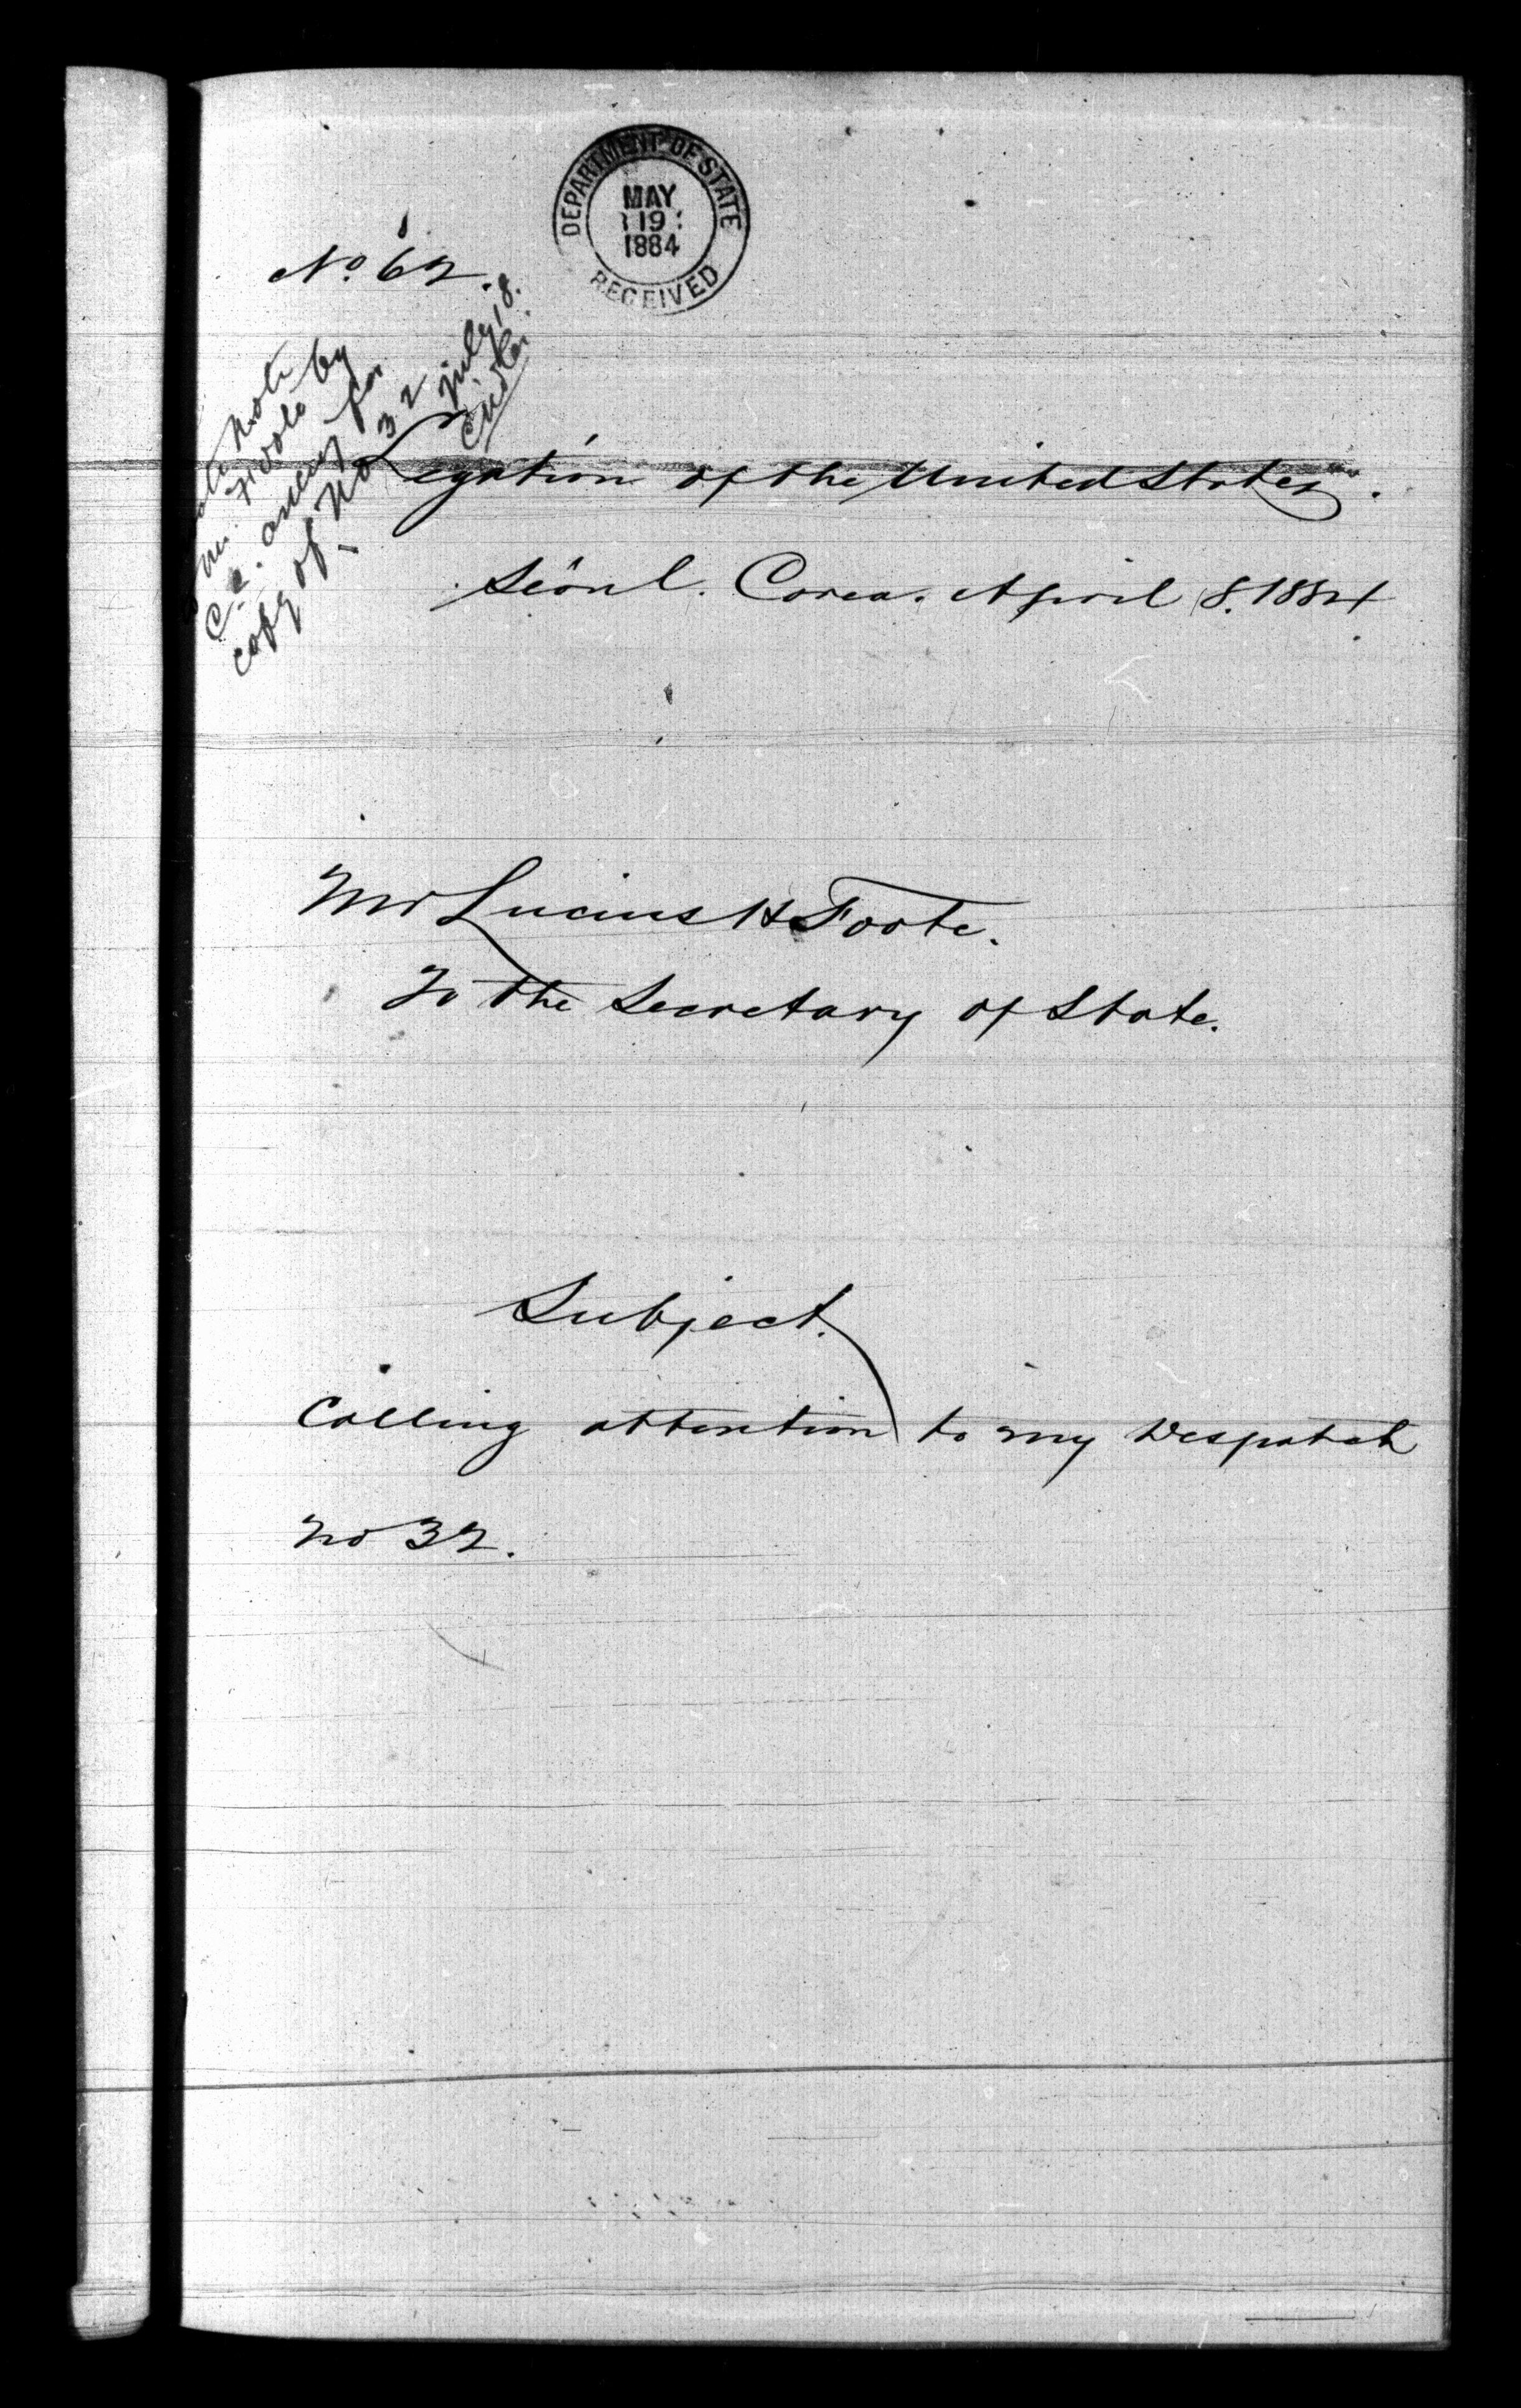 DEPARTMENT OF STATE
MAY
19
1884
RECEIVED
No 62.
note by
Mr. Foote
for
copy of No 32
July 18.
Legation of the United States.
Seoul. Corea. April 8. 1884
Mr Lucius H Foote.
To the Secretary of State.
Subject.
Calling attention to my Despatch
No 32.